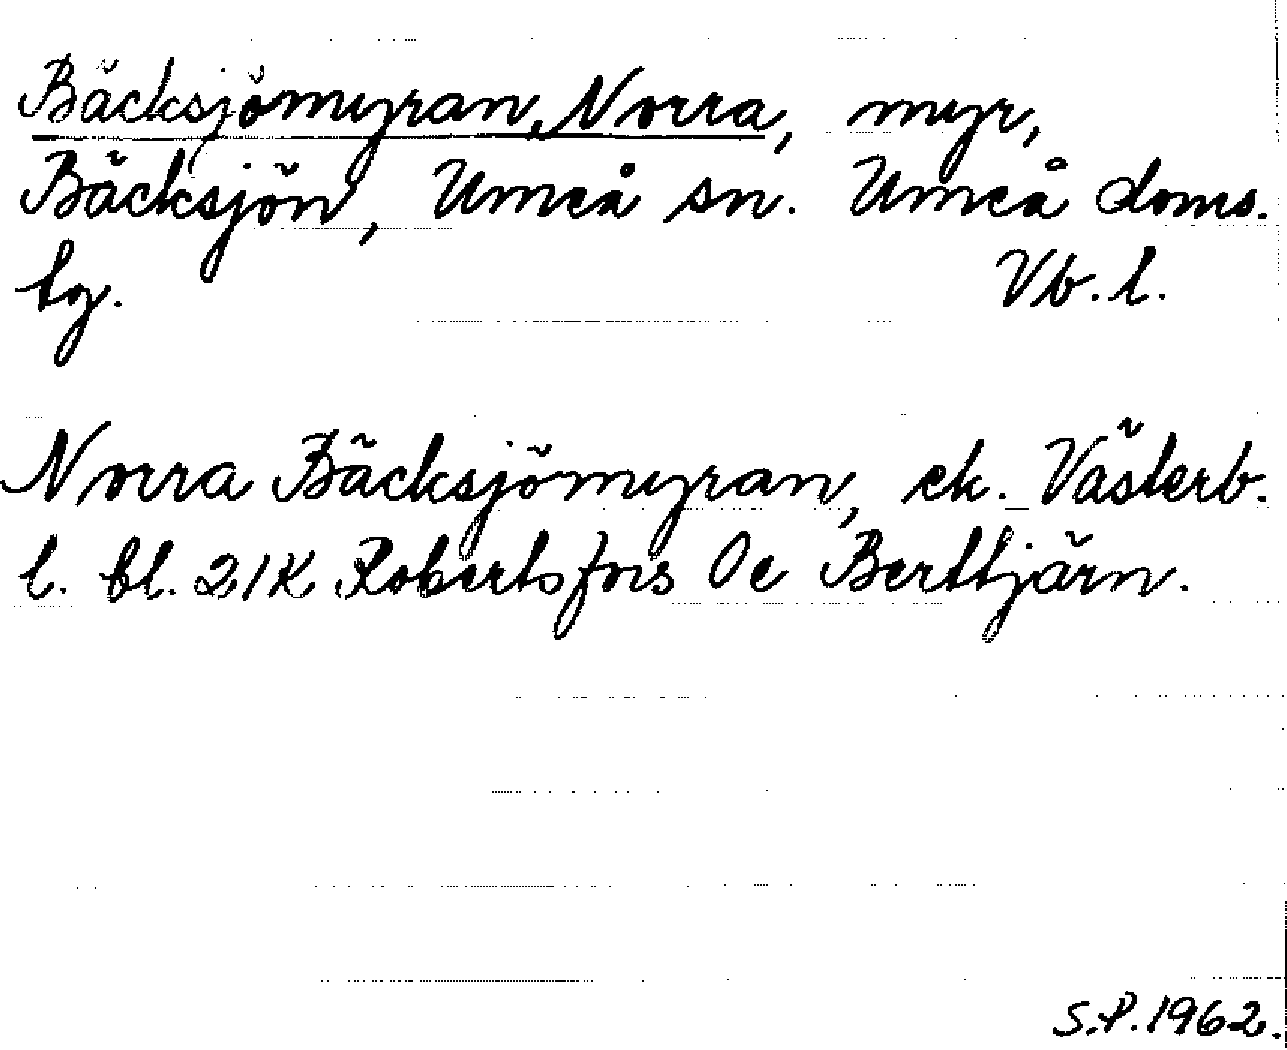 Bäcksjömyran, Norra, myr,
Bäcksjön, Umeå sn. Umeå doms.
lg. Vb. l.
Norra Bäcksjömyran, ek. Västerb.
l. bl. 21K Robertsfors 0e Berttjärn.
S.P. 1962.